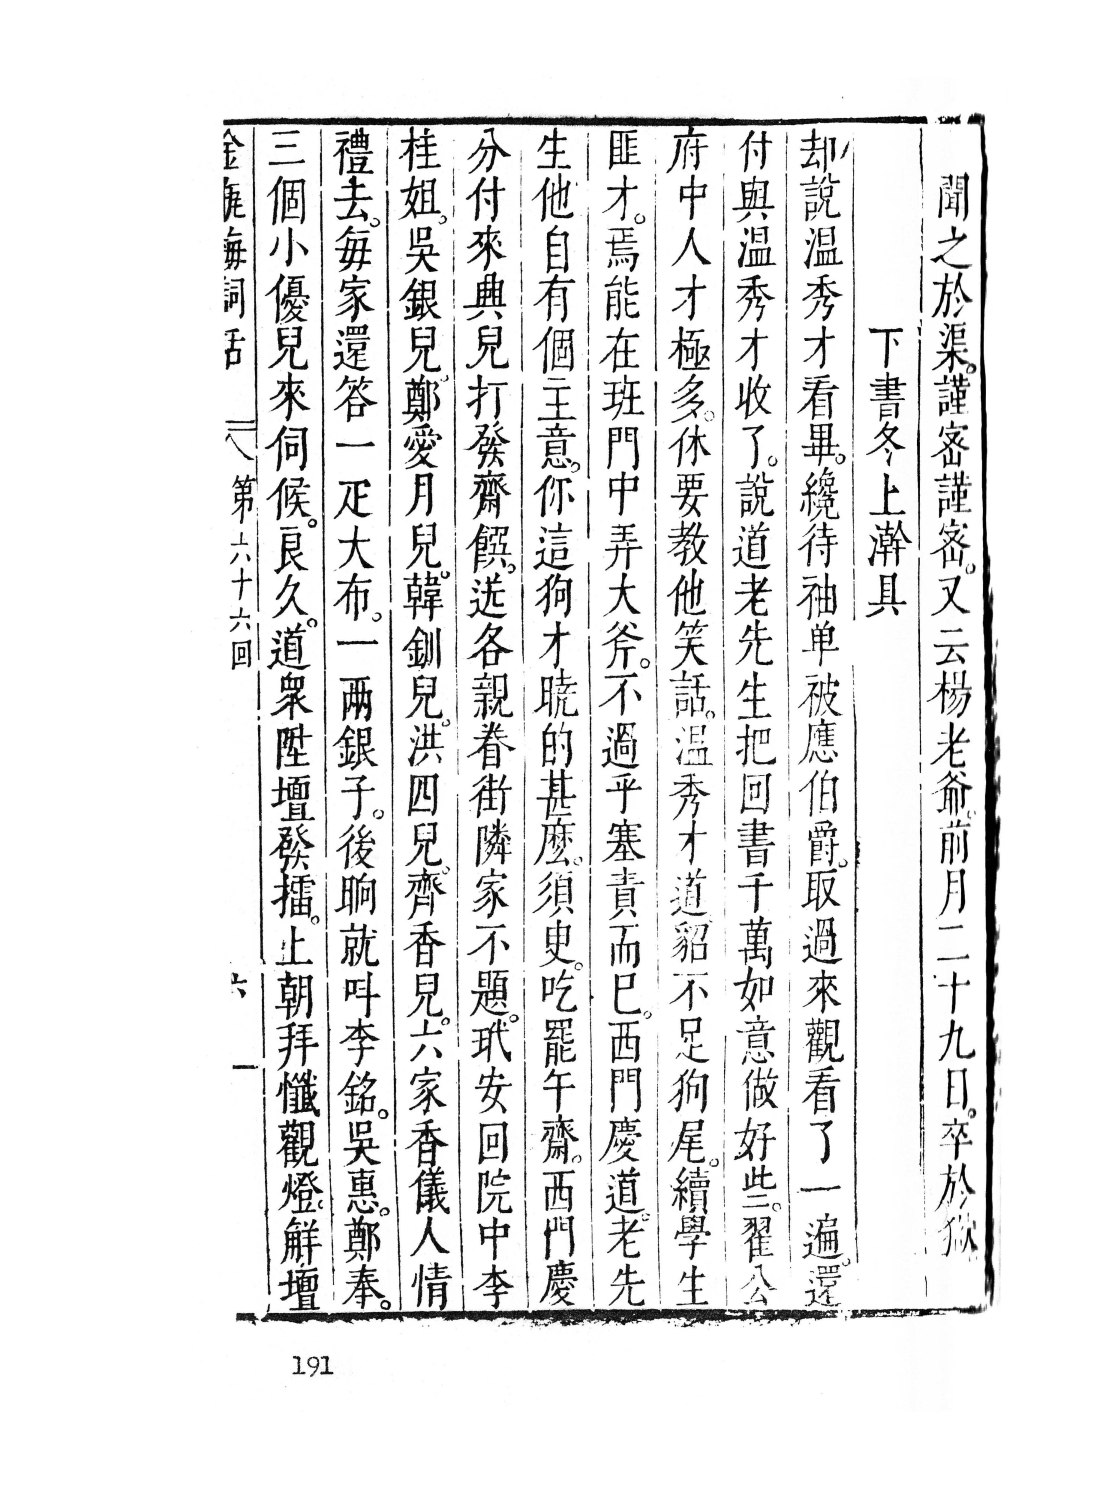 聞之於渠。謹宻謹宻。又云楊老爺。前月二十九日。卒於獄
下書冬上澣具
却說溫秀才看畢。纔待袖单被應伯爵。取過來觀看了一遍。還
付與溫秀才收了。說道老先生把回書千萬如意做好些。翟公
府中人才極多。休要教他笑話。溫秀才道貂不足狗尾。續學生
匪才。焉能在班門中弄大斧。不過乎塞責而已。西門慶道。老先
生他自有個主意。你這狗才曉的甚麼。須史。吃罷午齋。西門慶
分付來興兒打發齋饌。送各親眷街隣家不題。玳安回院中李
桂姐。吳銀兒鄭愛月兒。韓釧兒。洪四兒。齊香兒。六家香儀人情
禮去。每家還答一疋大布。一兩銀子。後晌就呌李銘。吳惠。鄭奉。
三個小優兒來伺候。良久。道衆陞壇發擂。上朝拜懺觀燈。觧壇
金瓶梅詞話
第六十六回
六
191